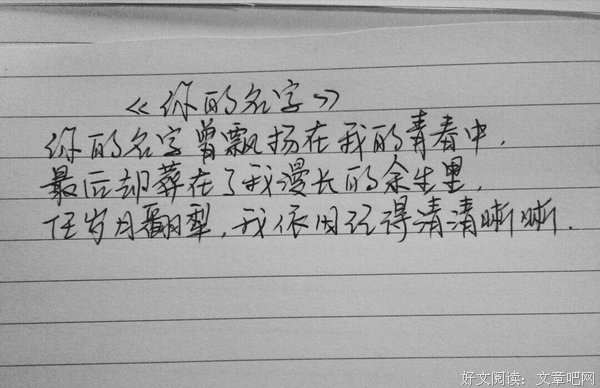 《你的名字》
你的名字曾飘扬在我的青春中.
最后却葬在了我漫长的余生里.
任岁月翻犁,我依因记得清清晰晰.
好文阅读：文章吧网